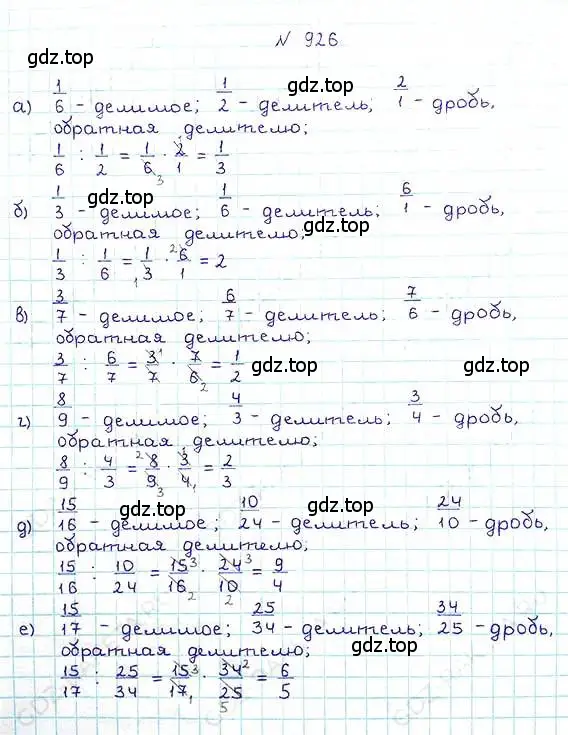 N 926
gdz.top
а) 1/6 - делимое; 1/2 - делитель; 2/1 - дробь,
обратная делителю;
1/6 : 1/2 = 1/6 · 2/1 = 1/3
gdz.top
б) 1/3 - делимое; 1/6 - делитель; 6/1 - дробь,
обратная делителю;
gdz.top
1/3 : 1/6 = 1/3 · 6/1 = 2
в) 3/7 - делимое; 6/7 - делитель; 7/6 - дробь,
обратная делителю;
3/7 : 6/7 = 3/7 · 7/6 = 1/2
gdz.top
г) 8/9 - делимое; 4/3 - делитель; 3/4 - дробь,
обратная делителю;
8/9 : 4/3 = 8/9 · 3/4 = 2/3
gdz.top
д) 15/16 - делимое; 10/24 - делитель; 24/10 - дробь,
обратная делителю;
15/16 : 10/24 = 15/16 · 24/10 = 9/4
gdz.top
е) 15/17 - делимое; 25/34 - делитель; 34/25 - дробь,
обратная делителю;
15/17 : 25/34 = 15/17 · 34/25 = 6/5